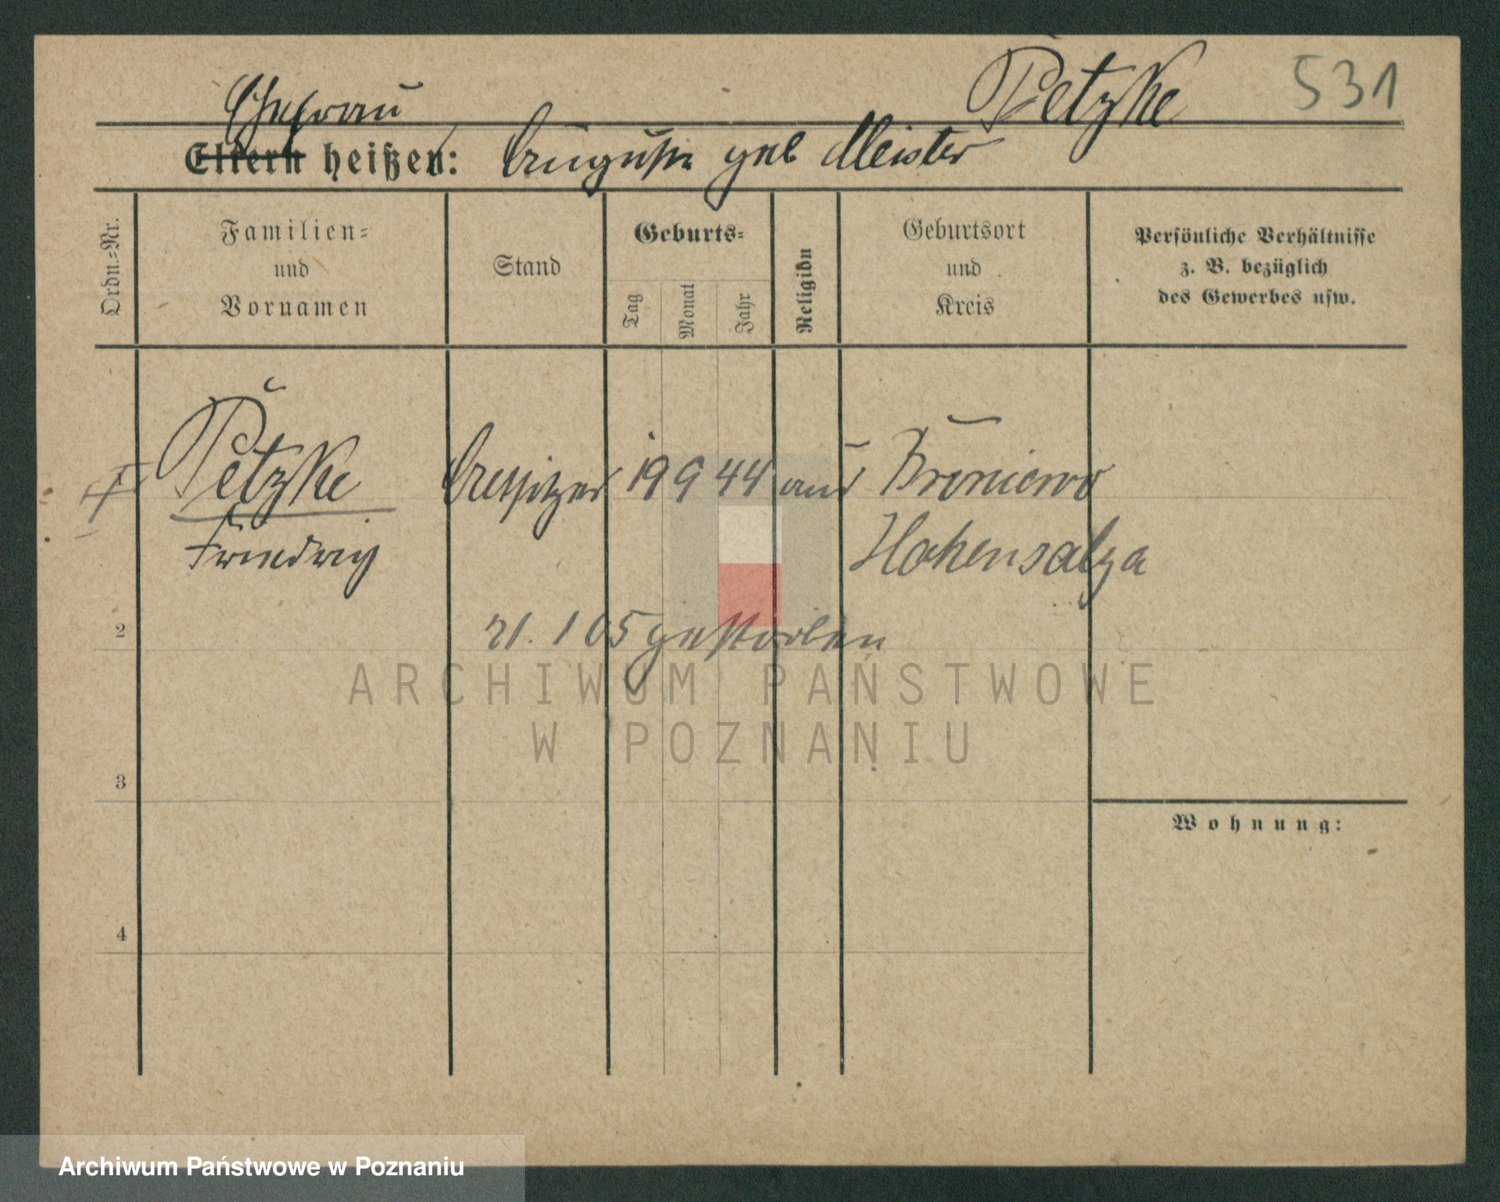 Petzke 531
Ehefrau
Eltern heißen: Auguste geb Meister
Ordn.-Nr.
Familien-
und
Vornamen
Stand
Geburts-
Tag
Monat
Jahr
Religion
Geburtsort
und
Kreis
Persönliche Verhältnisse
z. B. bezüglich
des Gewerbes usw.
Petzke Besitzer 19 9 44 Broniewo
Friedrich Hohensalza
2
21. 1 05 gestorben
ARCHIWUM PAŃSTWOWE
W POZNANIU
3
Wohnung:
4
Archiwum Państwowe w Poznaniu